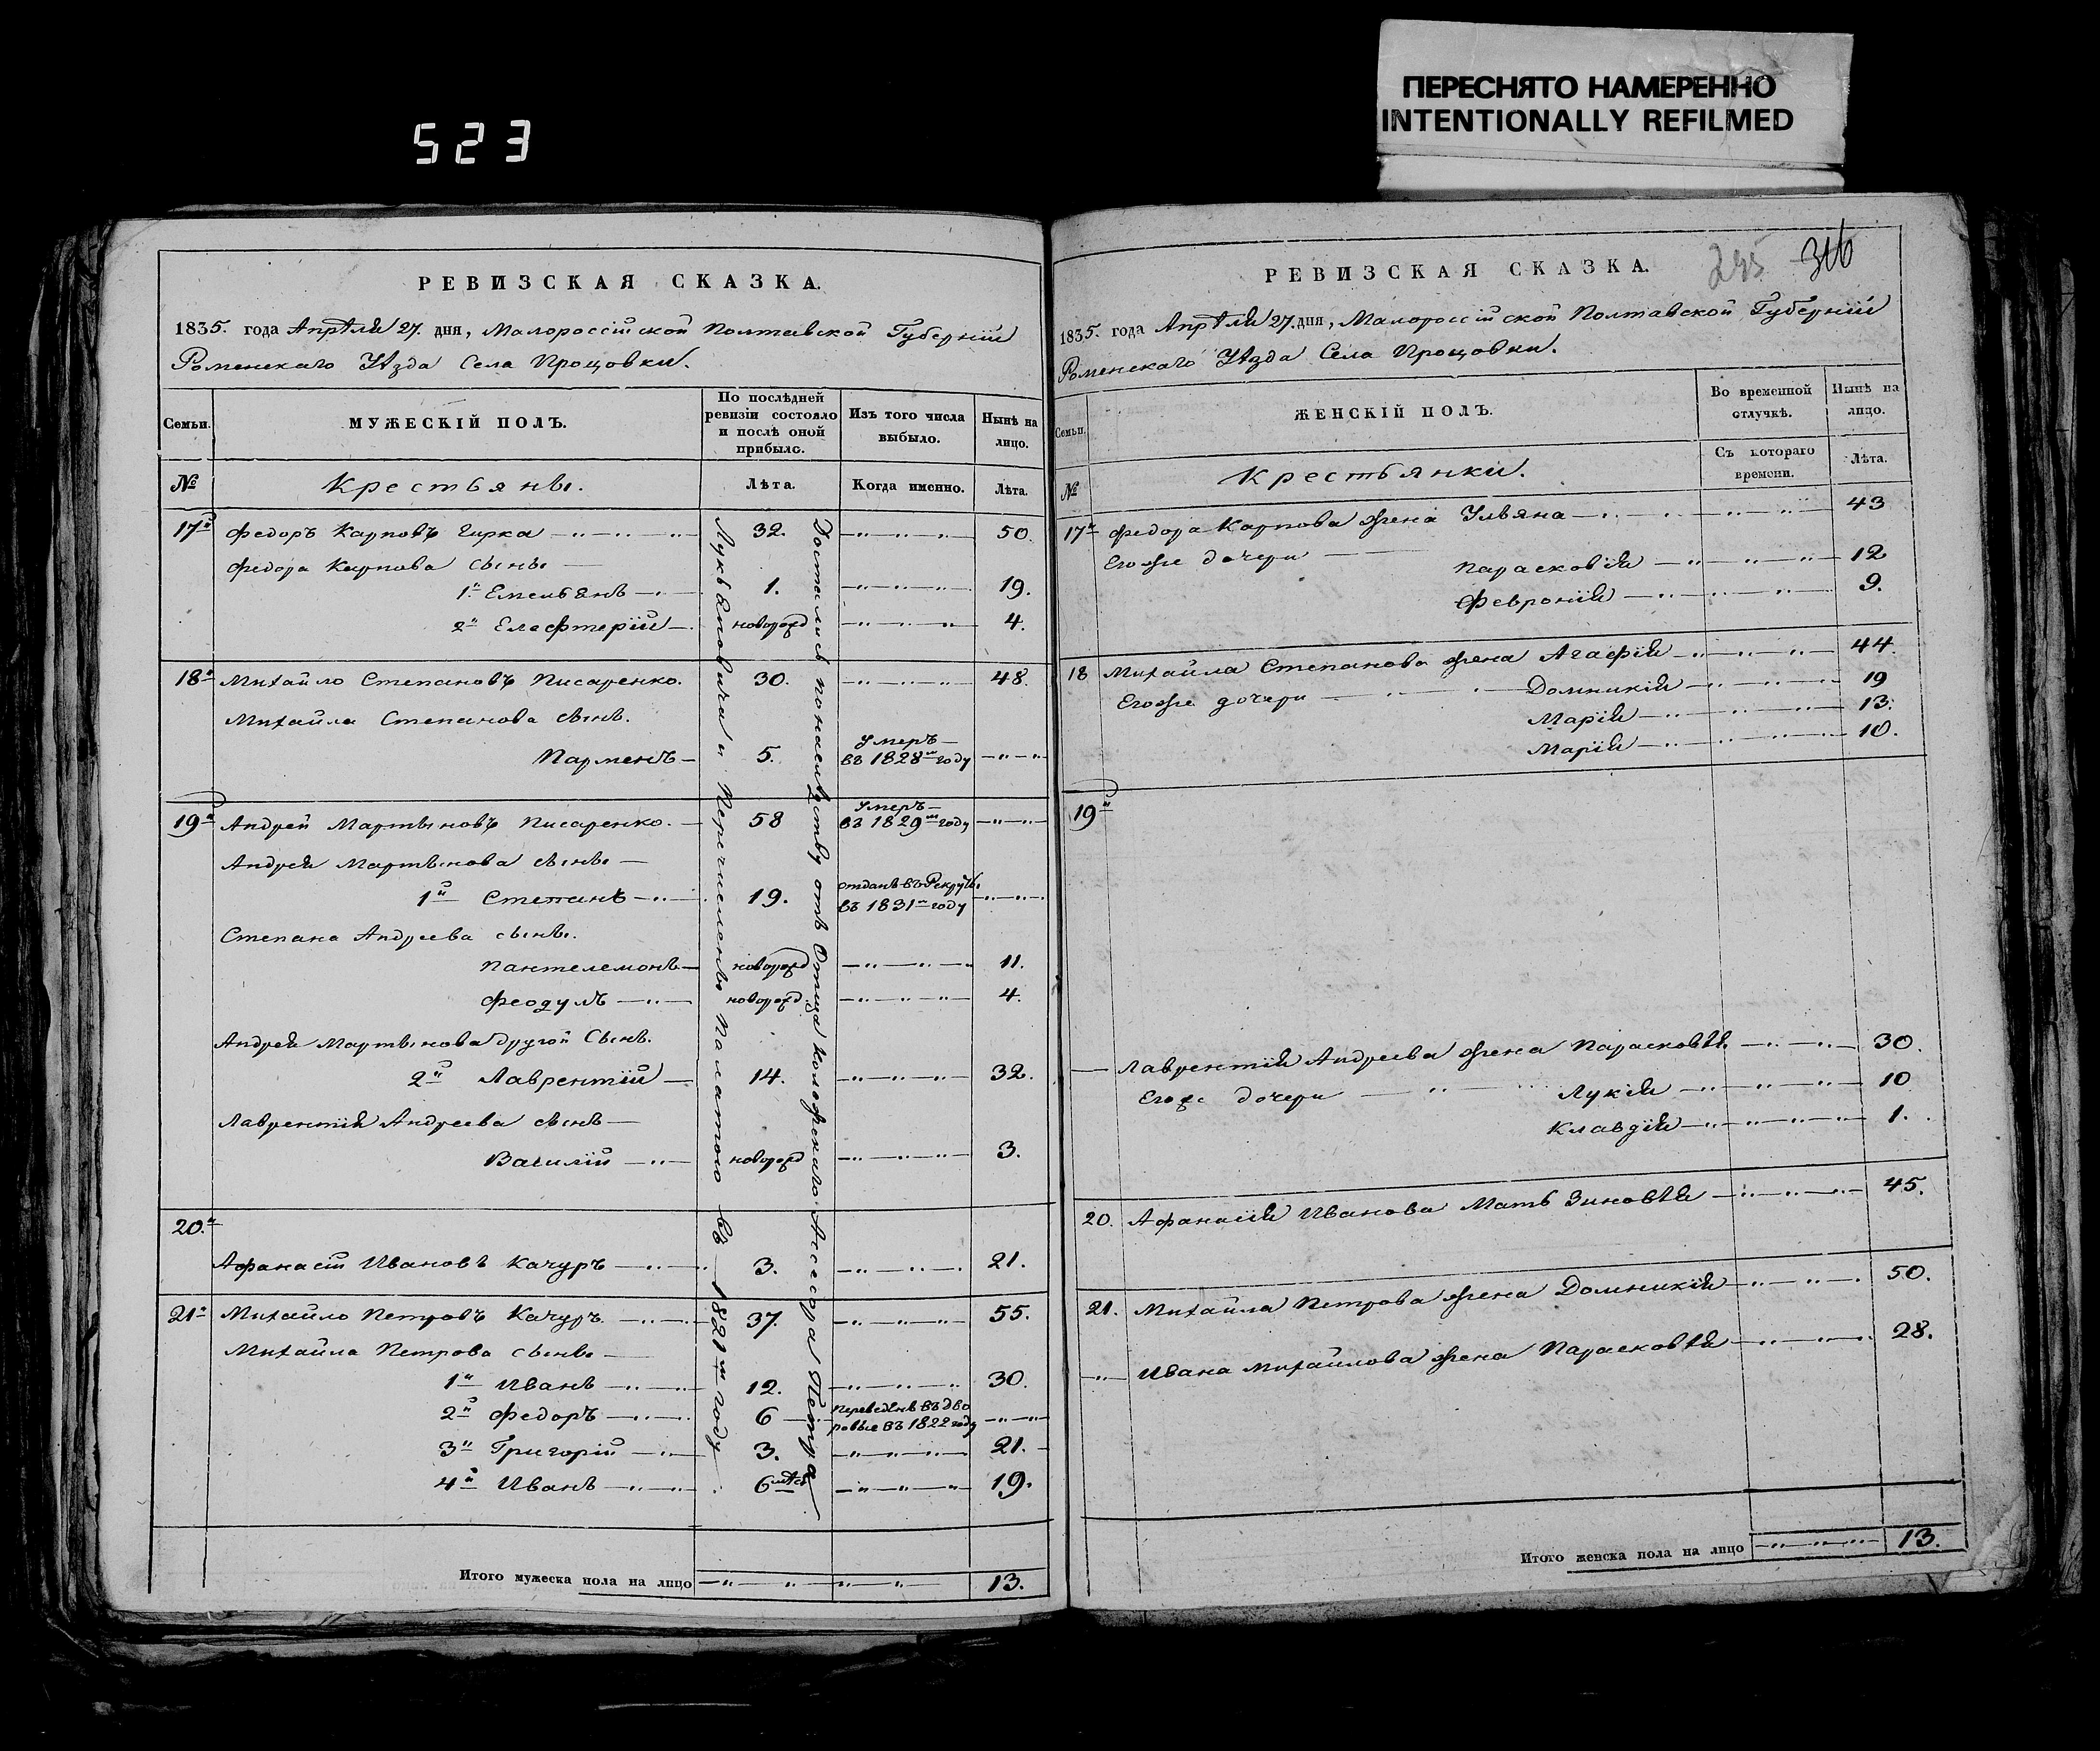 523
ПЕРЕСНЯТО НАМЕРЕННО
INTENTIONALLY REFILMED
РЕВИЗСКАЯ СКАЗКА.
1835. года Апрѣля 27. дня, Малороссійской Полтавской Губерніи
Роменскаго Уѣзда Села Прощовки.
Семьи.
МУЖЕСКІЙ ПОЛЪ.
По послѣдней ревизіи состояло и послѣ оной прибыло.
Изъ того числа выбыло.
Нынѣ на лицо.
№ Крестьяне. Лѣта. Когда именно. Лѣта.
17й Федоръ Карповъ Гирка 32. 50.
Федора Карпова сыны
1й Емельянъ 1. 19.
2й Елефтерій новорожд 4.
18й Михайло Степановъ Писаренко. 30. 48.
Михайла Степанова сынъ.
Парменъ 5. Умеръ въ 1828м году
19й Андрей Мартыновъ Писаренко. 58 Умеръ въ 1829м году
Андрея Мартынова сыны
1й Степанъ 19. отданъ въ Рекруты въ 1831м году
Степана Андреева сыны.
Пантелемонъ новорожд 11.
Феодулъ новорожд. 4.
Андрея Мартынова другой Сынъ.
2й Лаврентій 14. 32.
Лаврентія Андреева сынъ
Василій новорожд 3.
20.й
Афанасій Ивановъ Качуръ 3. 21.
21й Михайло Петровъ Качуръ 37. 55.
Михайла Петрова сыны
1й Иванъ 12. 30.
2й Федоръ 6 переведенъ въ дворовые въ 1822 году
3й Григорій 3. 21.
4й Иванъ 6 мѣс 19.
Достались по наследству отъ Отца коллежскаго Ассесора Петра
Лукьяновича и Перечислены Палатою въ 1821м году
Итого мужеска пола на лицо 13.
295 316
РЕВИЗСКАЯ СКАЗКА.
1835. года Апрѣля 27. дня, Малороссійской Полтавской Губерніи
Роменскаго Уѣзда Села Прощовки.
Семьи.
ЖЕНСКІЙ ПОЛЪ.
Во временной отлучкѣ.
Нынѣ на лицо.
№ Крестьянки. Съ котораго времени. Лѣта.
17й Федора Карпова жена Ульяна 43
Его же дочери Парасковія 12
Февронія 9.
18 Михайла Степанова жена Агафія 44.
Его же дочери Домникія 19
Марія 13.
Марія 10.
19й
Лаврентія Андреева жена Парасковѣя 30.
Его же дочери Лукія 10
Клавдія 1.
20. Афанасія Иванова Мать Зиновѣя 45.
21. Михайла Петрова жена Домникія 50.
Ивана Михайлова жена Парасковѣя 28.
Итого женска пола на лицо 13.